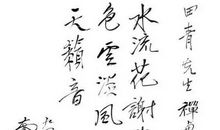 田青先生禅
水流花謝
色空溢風
天籟音